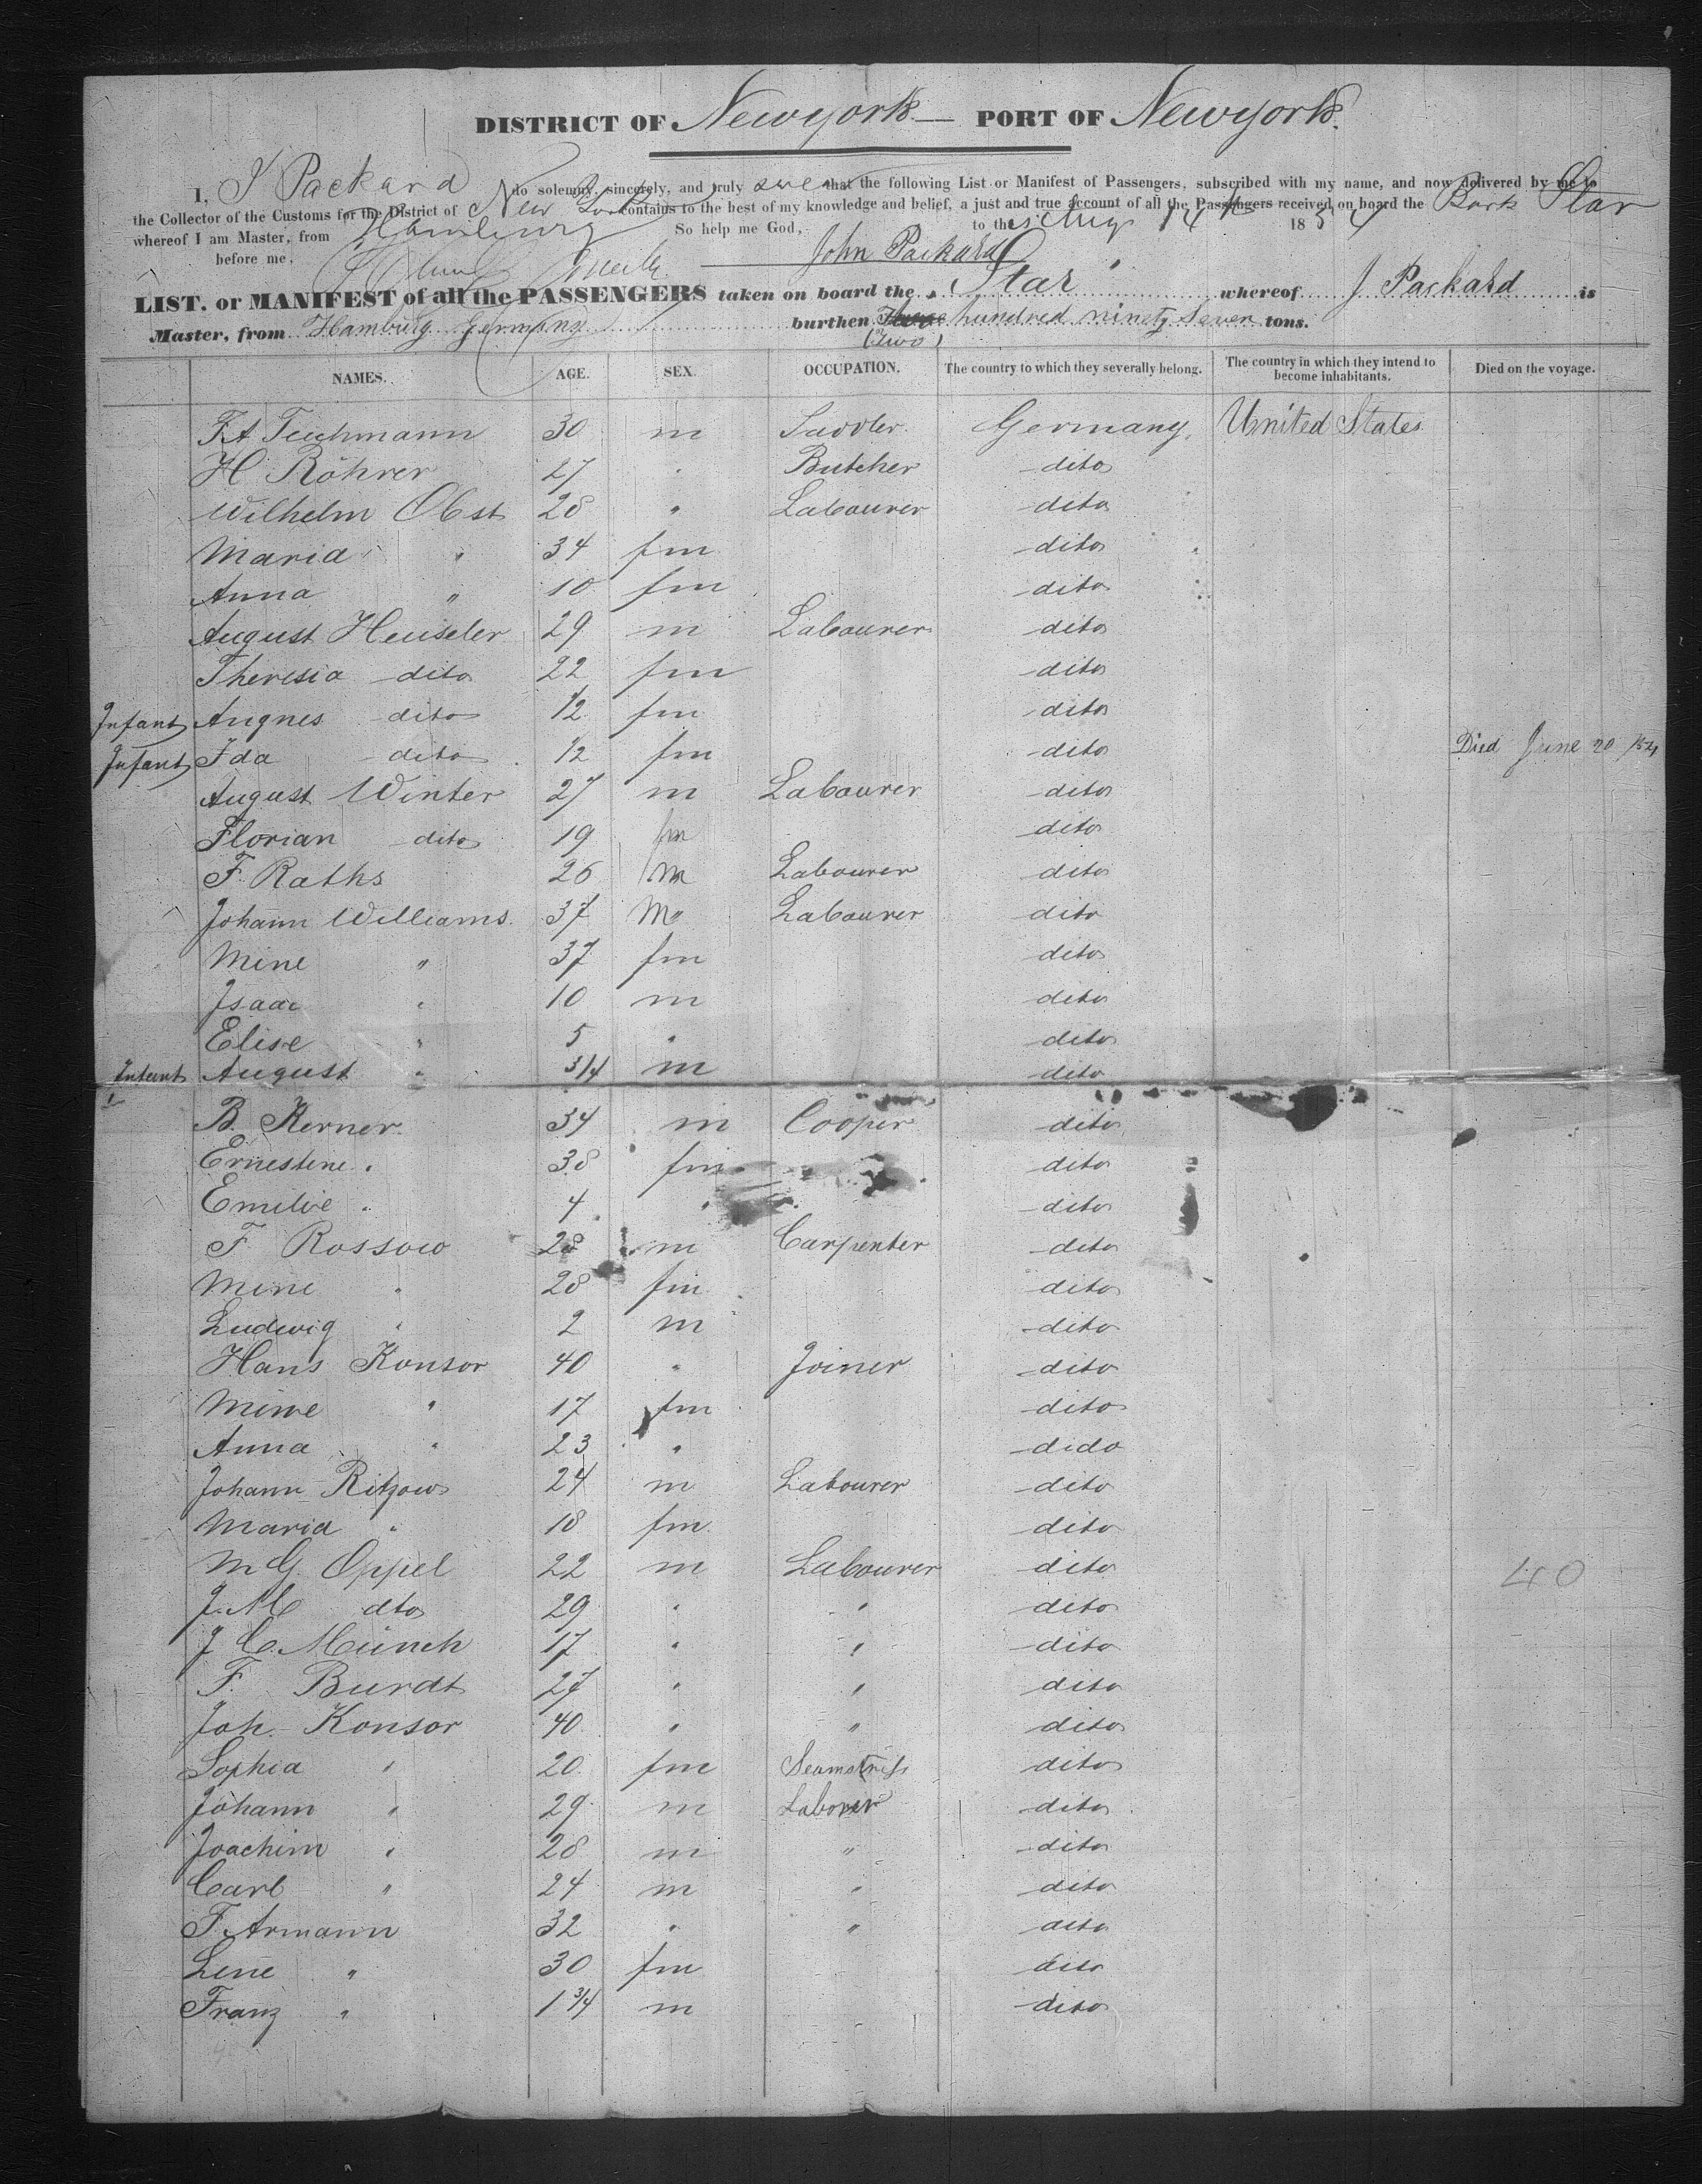 DISTRICT OF Newyork — PORT OF Newyork.
I, J Packard do solemnly, sincerely, and truly swear that the following List or Manifest of Passengers, subscribed with my name, and now delivered by me to
the Collector of the Customs for the District of New York contains to the best of my knowledge and belief, a just and true account of all the Passengers received on board the Bark Star
whereof I am Master, from Hamburg So help me God, to this Aug 14th 1854
before me, John Packard
LIST, or MANIFEST of all the PASSENGERS taken on board the Star whereof J Packard is
Master, from Hamburg Germany burthen hundred ninety Seven tons.
(Two)
NAMES. AGE. SEX. OCCUPATION. The country to which they severally belong. The country in which they intend to become inhabitants. Died on the voyage.
F.A Teichmann 30 m Saddler Germany, United States
H Röhrer 27 " Butcher dito
Wilhelm Obst 28 " Labourer dito
Maria " 34 fm dito
Anna " 10 fm dito
August Heuseler 29 m Labourer dito
Theresia dito 22 fm dito
Infant Augnes dito 1/2 fm dito
Infant Ida dito 1/2 fm dito Died June 20 1854
August Winter 27 m Labourer dito
Florian dito 19 fm dito
F. Raths 26 m Labourer dito
Johann Williams 37 m Labourer dito
Mine " 37 fm dito
Isaac " 10 m dito
Elise " 5 " dito
Infant August " 3/4 m dito
B. Kerner 34 m Cooper dito
Ernestine " 38 fm dito
Emilie " 4 " dito
F. Rossow 28 m Carpenter dito
Mine " 28 fm dito
Ludwig " 2 m dito
Hans Konsor 40 " Joiner dito
Mine " 17 fm dito
Anna " 23 " dido
Johann Ritzow 24 m Labourer dito
Maria " 18 fm dito
M G. Oppel 22 m Labourer dito 40
J. M dto 29 " " dito
J C. Münch 17 " " dito
F. Burdt 27 " " dito
Joh. Konsor 40 " " dito
Sophia " 20 fm Seamstress dito
Johann " 29 m Laborer dito
Joachim " 28 m " dito
Carl " 24 m " dito
F. Armann 32 " " dito
Lene " 30 fm dito
Franz " 1 3/4 m dito